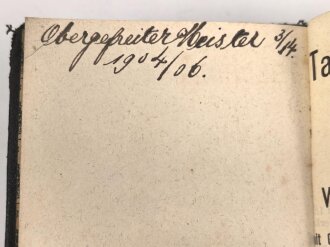 Obergefreiter Meister 3/14.
1904/06.
Ta